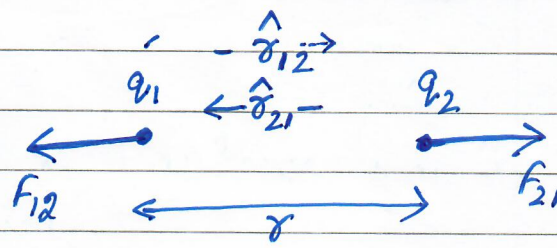 r̂₁₂
q₁ r̂₂₁ q₂
F₁₂ F₂₁
r